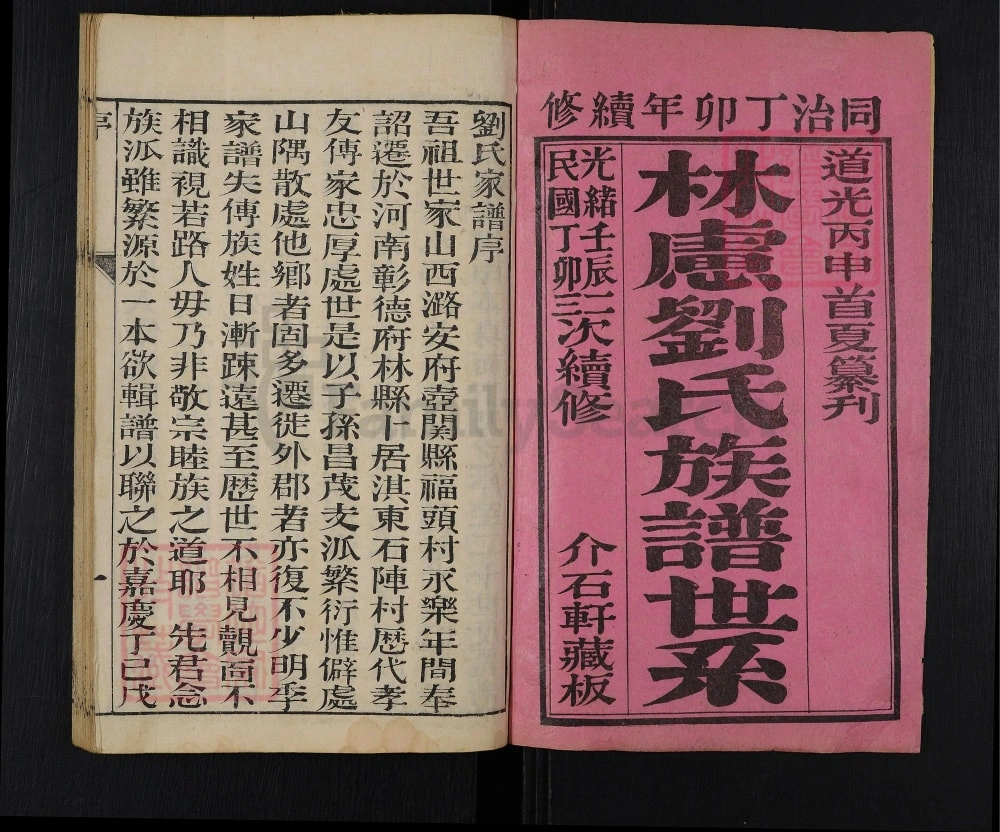 同治丁卯年續修
道光丙申首夏纂刋
林慮劉氏族譜世系
光緒壬辰二次續修
民國丁卯三次續修
介石軒藏板
劉氏家譜序
吾祖世家山西潞安府壺関縣福頭村永樂年間奉
詔遷於河南彰德府林縣卜居淇東石陣村歴代孝
友傳家忠厚處世是以子孫昌茂支派繁衍惟僻處
山隅散處他鄉者固多遷徙外郡者亦復不少明季
家譜失傳族姓日漸踈遠甚至歴世不相見覿面不
相識視若路人毋乃非敬宗睦族之道耶　先君念
族派雖繁源於一本欲輯譜以聯之於嘉慶丁巳戊
序
FamilySearch